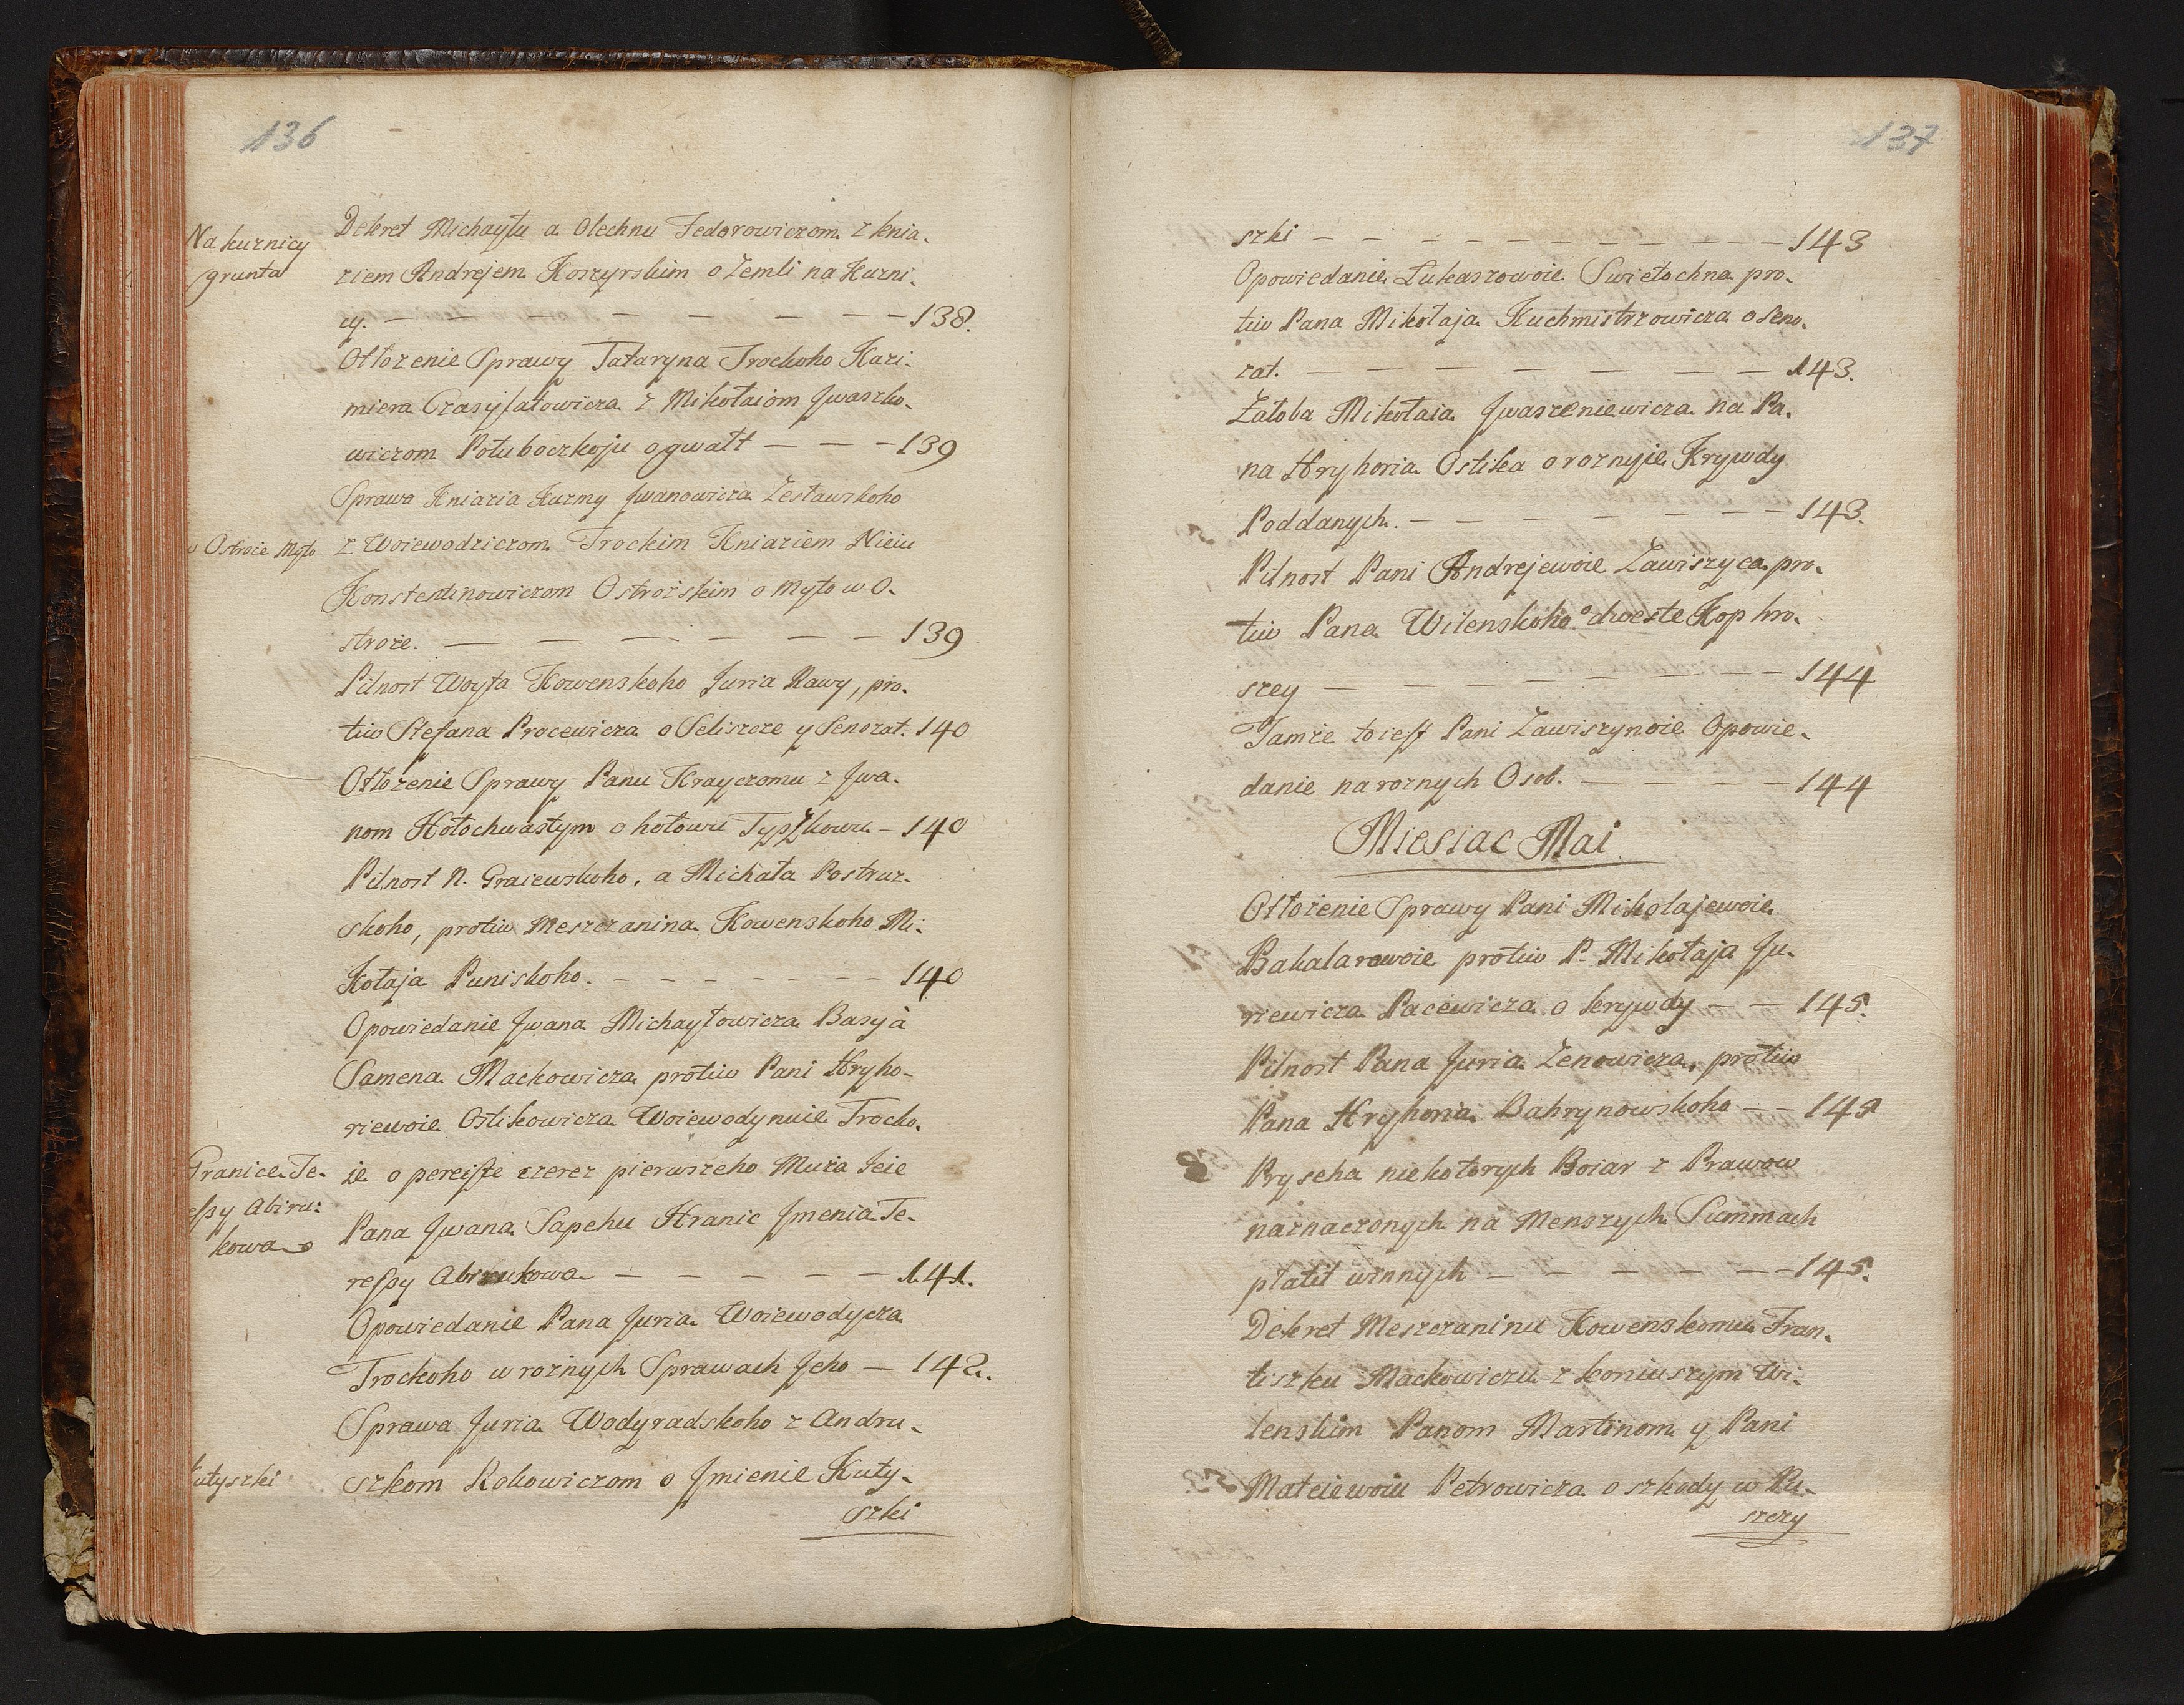 136
Na kuznicy
grunta
Dekret Michayłu a Olechnu Fedorowiczom z knia-
ziem Andrejem Koszyrskim o Zemli na Kuzni-
cy. — — — — — — — 138.
Otłozenie Sprawy Tataryna Trockoho Kazi-
miera Czasyfatowicza z Mikołaiom Jwaszko-
wiczom Połuboczkoju o gwałt — — — 139
Sprawa Kniazia Kuzmy Jwanowicza Zesławskoho
w Ostroże Myto
z Woiewodziczom Trockim Kniaziem Nieiu
Konstentinowiczom Ostrożskim o Myto w O-
stroże. — — — — — — 139
Pilnost Woyta Kowenskoho Juria Rawy, pro-
tiw Stefana Procewicza o Seliszcze y Senozat. 140
Otłożenie Sprawy Panu Krayczomu z Jwa-
nom Hołochwastym o hołowu Tyszkowu — 140
Pilnost N. Graiewskoho, a Michała Postruz-
skoho, protiw Meszczanina Kowenskoho Mi-
kołaja Puniskoho. — — — — — — 140
Opowiedanie Jwana Michayłowicza Basyà
Samena Mackowicza protiw Pani Hryho-
riewoie Ostikowicza Woiewodynuie Trocko-
Granice Te-
respy Abiru-
kowa
ie o pereiste czerez pierwszeho Muża Jeie
Pana Jwana Sapehu Hranic Jmenia Te-
respy Abirukowa — — — — — 141.
Opowiedanie Pana Juria Woiewodycza
Trockoho w rożnych Sprawach Jeho — 142.
Sprawa Juria Wodyradskoho z Andru-
Kutyszki
szkom Rokowiczom o Jmienie Kuty-
szki
137
szki — — — — — — — — — — 143
Opowiedanie Łukaszowoie Swietochna pro-
tiw Pana Mikołaja Kuchmistrzowicza o Seno-
zat. — — — — — — — 143.
Żałoba Mikołaia Jwaszeniewicza na Pa-
na Hryhoria Ostika o roznyje Krywdy
Poddanych. — — — — — — — 143.
Pilnost Pani Andrejewoie Zawiszyca pro-
tiw Pana Wilenskoho o dweste Kop hro-
szey — — — — — — — 144
Tamże to iest Pani Zawiszynoie Opowie-
danie na roznych Osob. — — — — 144
Miesiac Mai
Otłożenie Sprawy Pani Mikolajewoie
Bakalarowoie protiw P. Mikołaja Ju-
riewicza Pacewicza o krywdy — — 145.
Pilnost Pana Juria Zenowicza, protiw
Pana Hryhoria Bahrynowskoho — — 145
Pryseha niekotorych Boiar z Prawow
naznaczonych na Menszych Summach
płatit winnych — — — — — — 145.
Dekret Meszczaninu Kowenskomu Fran-
tiszku Mackowiczu z koniuszym Wi-
lenskim Panom Martinom y Pani
Mateiewoiu Petrowicza o szkody w Pu-
szczy